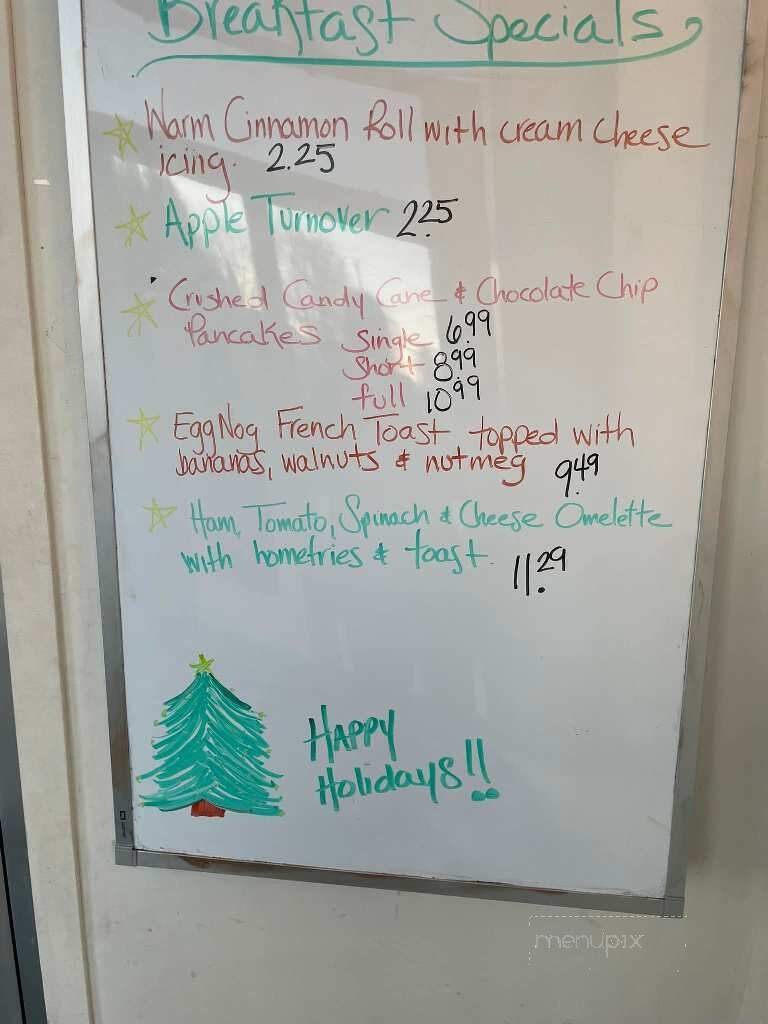 Breakfast Specials
Warm Cinnamon Roll with cream cheese
icing. 2.25
Apple Turnover 2.25
Crushed Candy Cane & Chocolate Chip
Pancakes Single 6.99
Short 8.99
full 10.99
EggNog French Toast topped with
bananas, walnuts & nutmeg 9.49
Ham, Tomato, Spinach & Cheese Omelette
with homefries & toast. 11.29
HAPPY
Holidays!!
menupix